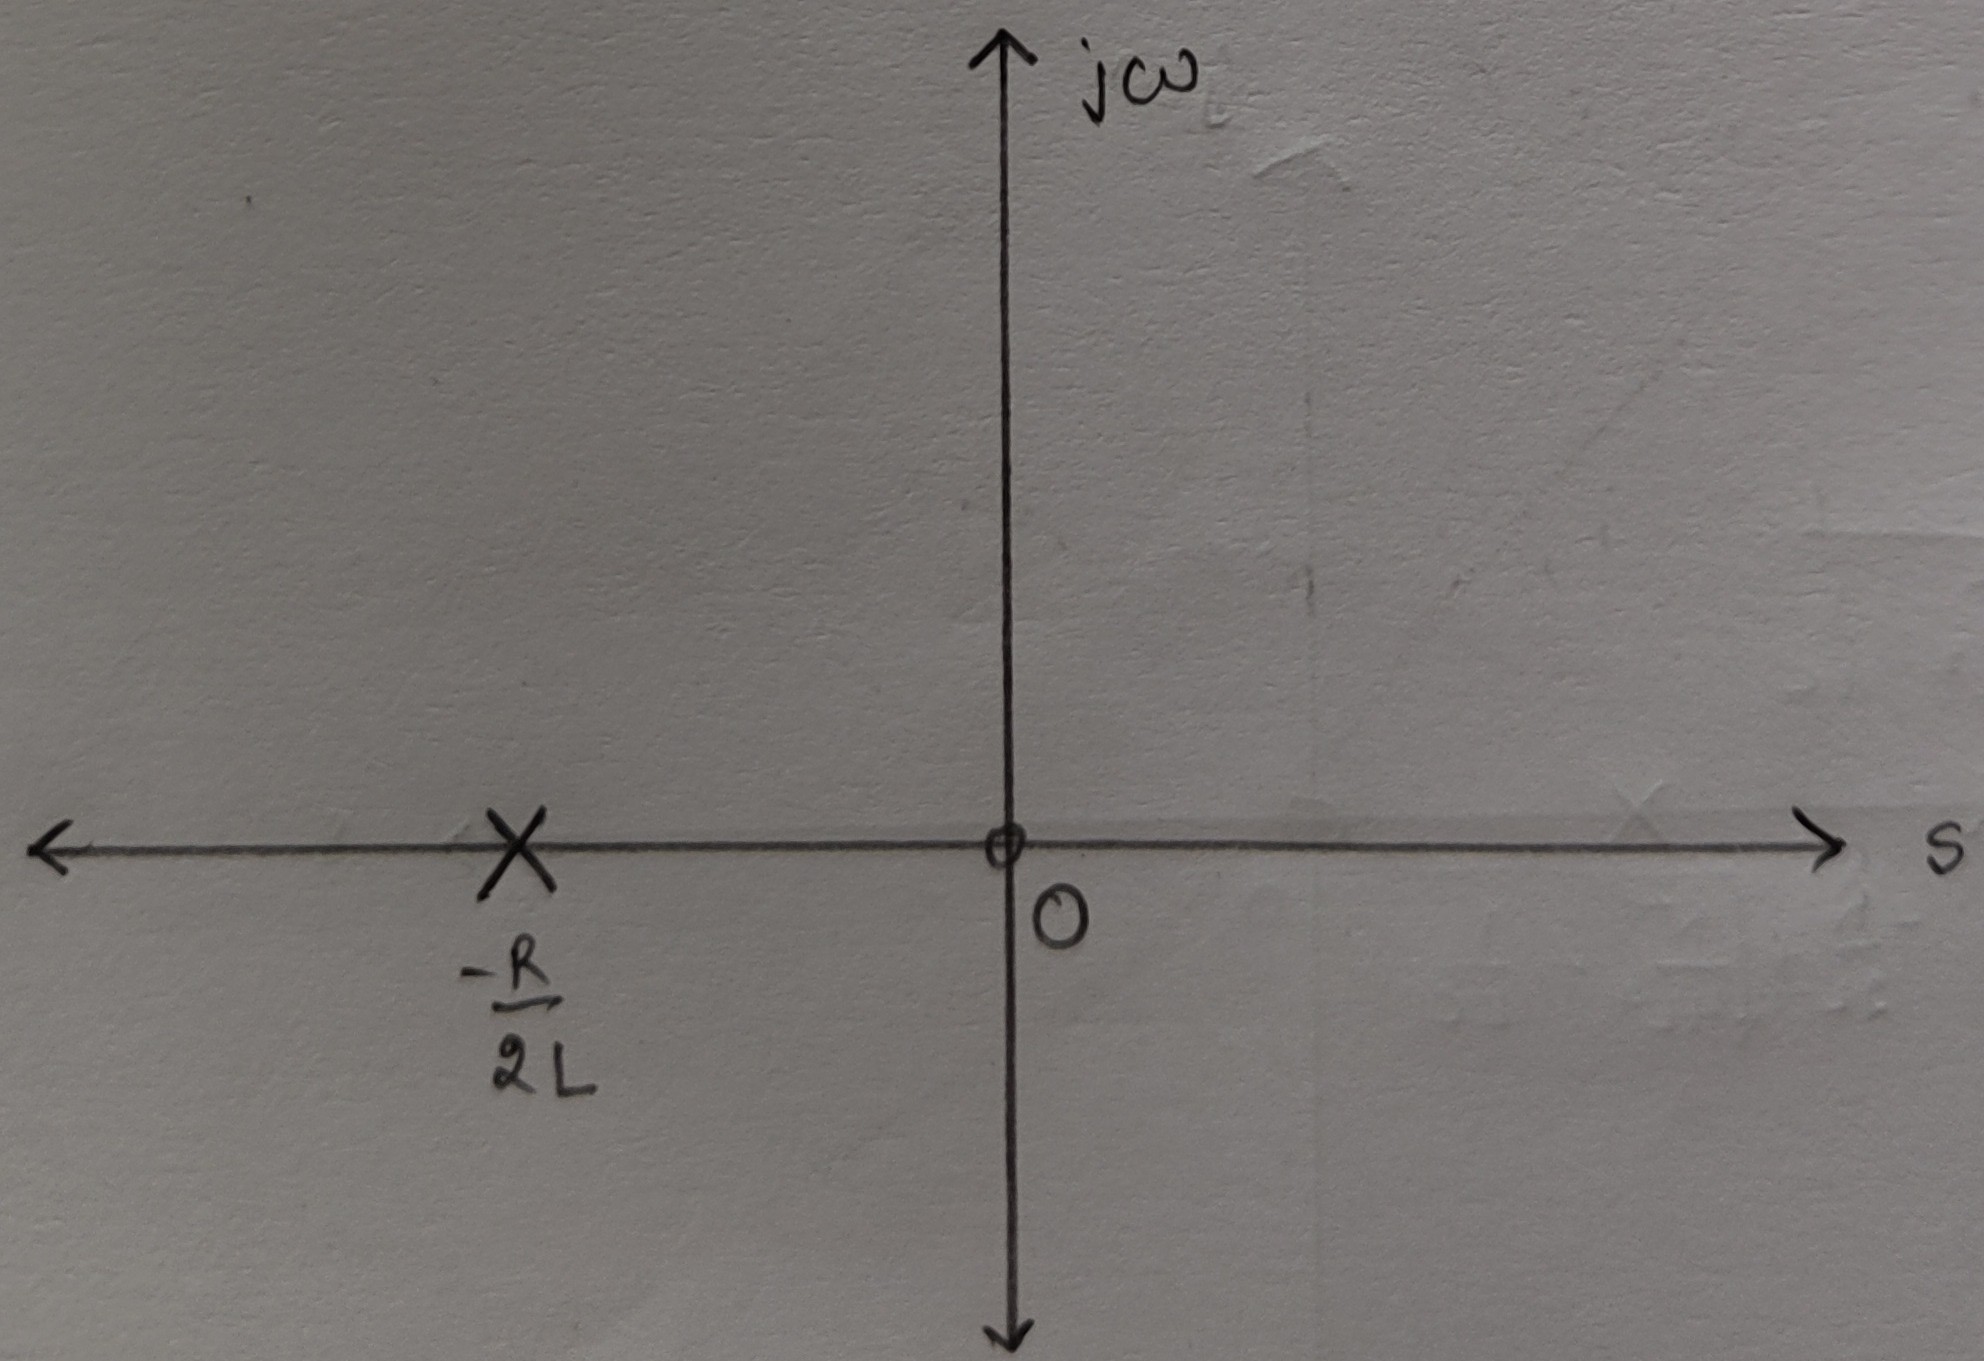 jω
S
O
-R
2L